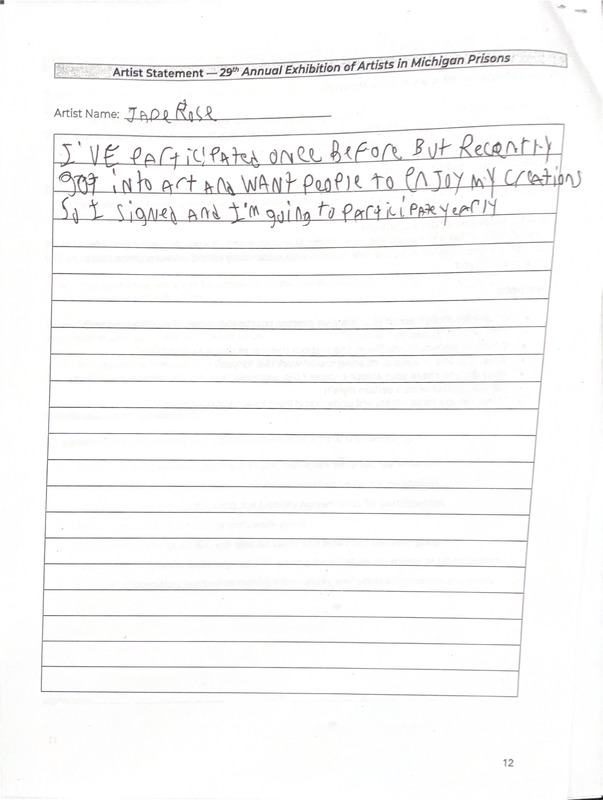 Artist Statement — 29th Annual Exhibition of Artists in Michigan Prisons
Artist Name: JADE ROSE
I'VE PARTICIPATED ONCE BEFORE BUT RECENTLY
got into Art AND WANT PEOPLE TO ENJOY MY CREATIONS
So I signed AND I'm going to PARTICIPATE yEARly
12